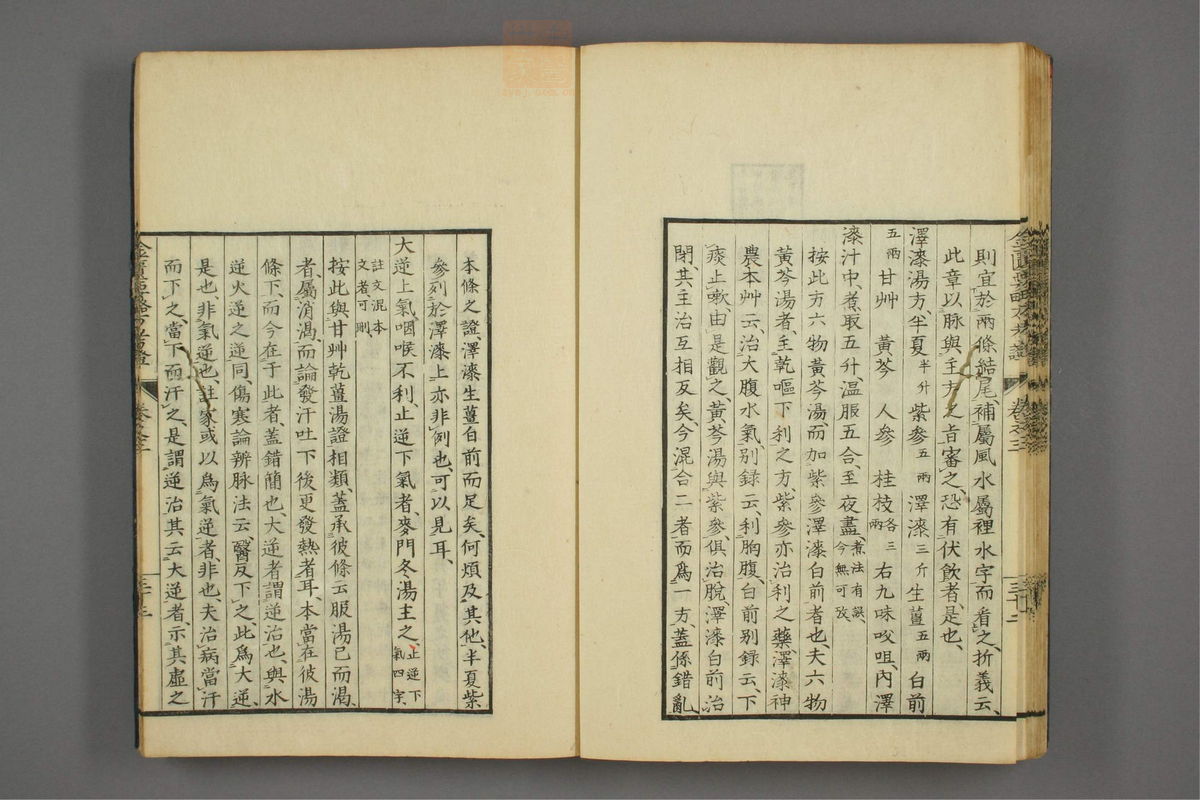 則宜於兩條結尾、補屬風水屬裡水字而看之、折義云、
此章以脉與主方之旨審之、恐有伏飲者、是也、
澤漆湯方、半夏半升 紫參五兩 澤漆三斤 生薑五兩 白前
五兩 甘艸 黃芩 人參 桂枝各三兩 右九味㕮咀、內澤
漆汁中、煮取五升温服五合、至夜盡、煮法有誤、今無可攷、
按此方六物黃芩湯、而加紫參澤漆白前者也、夫六物
黃芩湯者、主乾嘔下利之方、紫參亦治利之藥、澤漆神
農本艸云、治大腹水氣、別録云、利胸腹、白前別録云、下
痰止嗽、由是觀之、黃芩湯與紫參、俱治脫、澤漆白前治
閉、其主治互相反矣、今混合二者而為一方、蓋係錯亂、
本條之證、澤漆生薑白前而足矣、何煩及其他、半夏紫
參列於澤漆上亦非例也、可以見耳、
大逆上氣、咽喉不利、止逆下氣者、麥門冬湯主之、止逆下氣四字、
註文混本文者、可刪、
按此與甘艸乾薑湯證相類、蓋承彼條云服湯已而渴、
者、屬消渴、而論發汗吐下後更發熱者耳、本當在彼湯
條下、而今在于此者、蓋錯簡也、大逆者謂逆治也、與水
逆火逆之逆同、傷寒論辨脉法云、醫反下之、此為大逆、
是也、非氣逆也、註家或以為氣逆者、非也、夫治病當汗
而下之、當下而汗之、是謂逆治其云大逆者、示其虛之